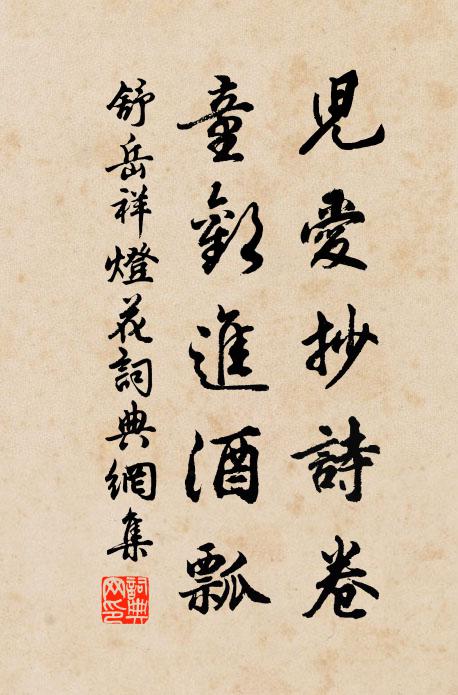 兒愛抄詩卷
童歡進酒瓢
舒岳祥燈花詞典網集
詞典网印